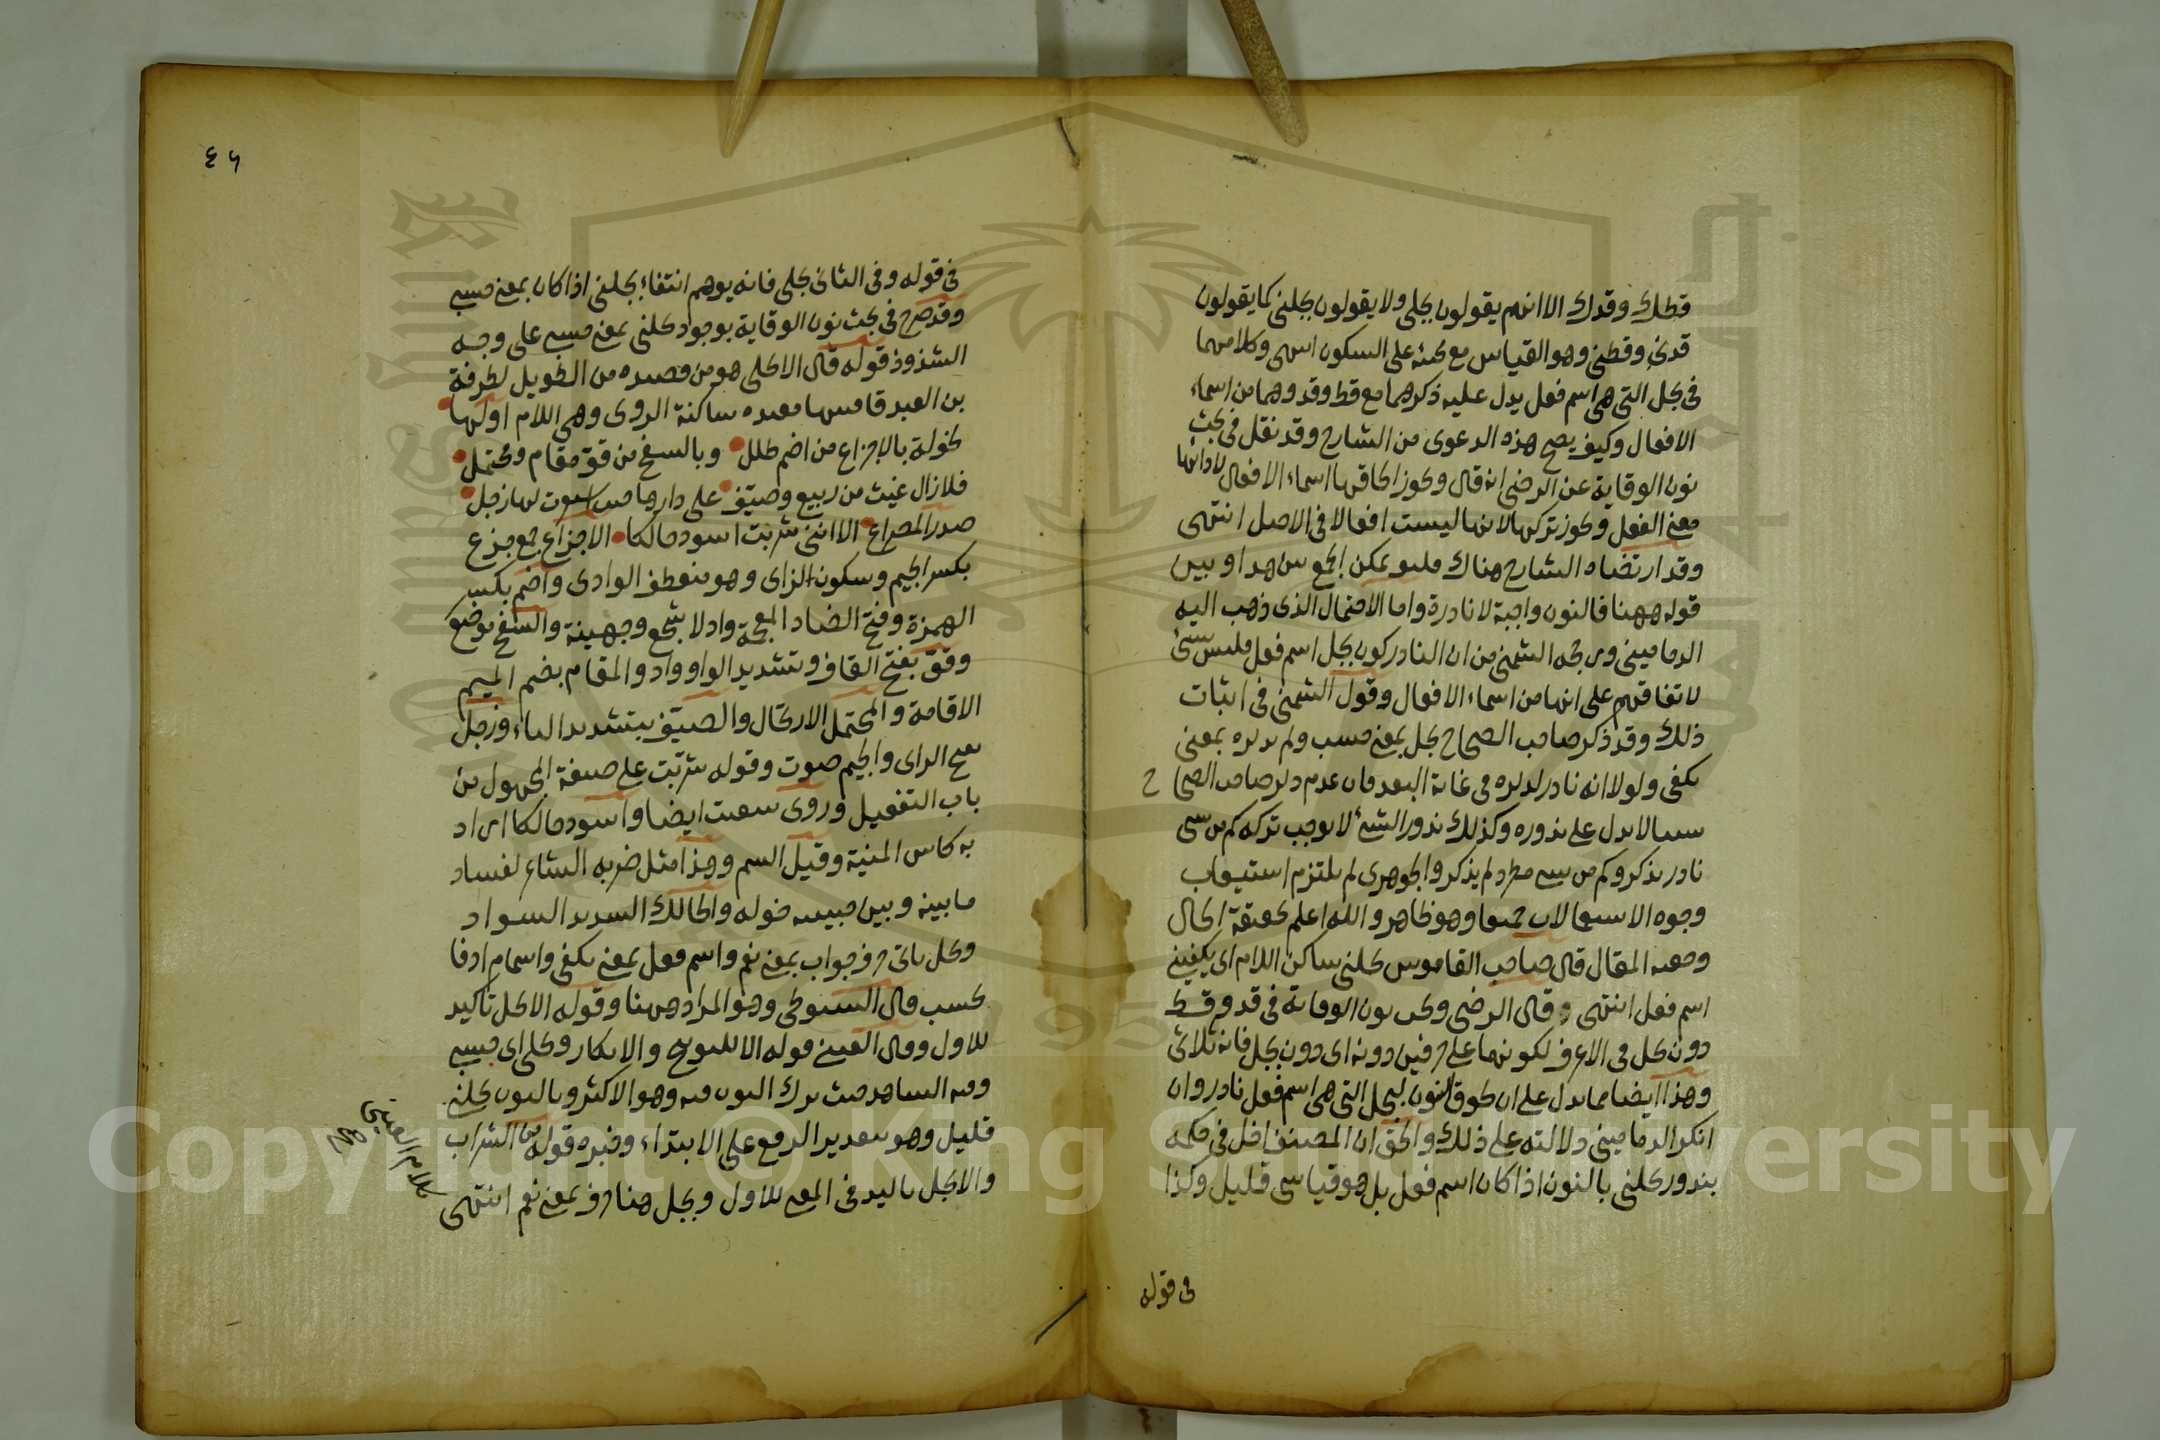 قطك وقدك الا انهم يقولون بجلي ولا يقولون بجلني كما يقولون
قدني وقطني وهو القياس مع كونه على السكون انتهى وكلامهما
في بجل التي هي اسم فعل يدل عليه ذكرهما مع قط وقد وهما من اسماء
الافعال وكيف يصح هذه الدعوى من الشارح وقد نقل في بحث
نون الوقاية عن الرضي انه قال ويجوز الحاقها اسماء الافعال لادائها
معنى الفعل ويجوز تركها لانها ليست افعالا في الاصل انتهى
وقد ارتضاه الشارح هناك يمكن الجمع بين هذا وبين
قوله ههنا فالنون واجبة لا نادرة واما الاحتمال الذي ذهب اليه
الدماميني ورجحه الشمني من ان النادر كون بجل اسم فعل فليس بشئ
لاتفاقهم على انها من اسماء الافعال وقول الشمني في اثبات
ذلك وقد ذكر صاحب الصحاح بجل بمعنى حسب ولم يذكره بمعنى
يكفي ولولا انه نادر لذكره في غاية البعد فان عدم ذكر صاحب الصحا ح
شيئا لا يدل على ندوره وكذلك ندور الشئ لا يوجب تركه كم من شئ
نادر يذكر وكم من شئ مطرد لم يذكر والجوهري لم يلتزم استيعاب
وجوه الاستعمالات جميعا وهو ظاهر والله اعلم بحقيقة الحال
المقال قال صاحب القاموس بجلني ساكن اللام اي يكفيني
اسم فعل انتهى وقال الرضي نون الوقاية في قد وقط
دون بجل في الاعرف لكونهما على حرفين دونه اي دون بجل فانه ثلاثي
وهذا ايضا مما يدل على ان لحوق النون لبجل التي هي اسم فعل نادر وان
انكر الدماميني دلالته على ذلك والحق ان المصنف اخل في حكمه
بندور بجلني بالنون اذا كان اسم فعل بل هو قياسي قليل وكذا
في قوله
٤٦
في قوله وفي الثاني بجلي فانه يوهم انتفاء بجلني اذا كان بمعنى حسبي
وقد صرح في بحث نون الوقاية بوجود بجلني بمعنى حسبي على وجه
الشذوذ قوله قال الا بجلي هو من قصيدة من الطويل لطرفة
بن العبد مقيدة ساكنة الروي وهي اللام اولها
لخولة بالاجزاع من اضم طلل وبالسفح من قو مقام ومحتمل
فلا زال غيث من ربيع وصيف على دارها حيث استقرت لها زجل
صدر المصراع الا انني شربت اسود حالكا الاجزاع جمع جزع
بكسر الجيم وسكون الزاي وهو منعطف الوادي واضم بكسر
الهمزة وفتح الضاد المعجمة واد لاشجع وجهينة والسفح موضع
وقو بفتح القاف وتشديد الواو واد والمقام بضم الميم
الاقامة والمحتمل الارتحال والصيف بتشديد الياء وزجل
بفتح الزاي والجيم صوت وقوله شربت على صيغة المجهول من
باب التفعيل وروى سقيت ايضا واسود حالكا اراد
به كاس المنية وقيل السم وهذا مثل ضربه الشاعر لفساد
ما بينه وبين حبيبته خوله والحالك الشديد السواد
وبجل ياتي حرف جواب بمعنى نعم واسم فعل بمعنى يكفي واسما مرادفا
لحسب قال السيوطي وهو المراد ههنا وقوله الا بجل تاكيد
للاول وقال العيني قوله الا للتوبيخ والانكار وبجلي اي حسبي
وفيه الشاهد حيث ترك النون منه وهو الاكثر وبالنون بجلني
قليل وهو بتقدير الرفع على الابتداء وخبره قوله من الشراب
والا بجل تاكيد في المعنى للاول وبجل هنا حرف بمعنى نعم انتهى
كلام العيني
صح
Copyright © King Saud University